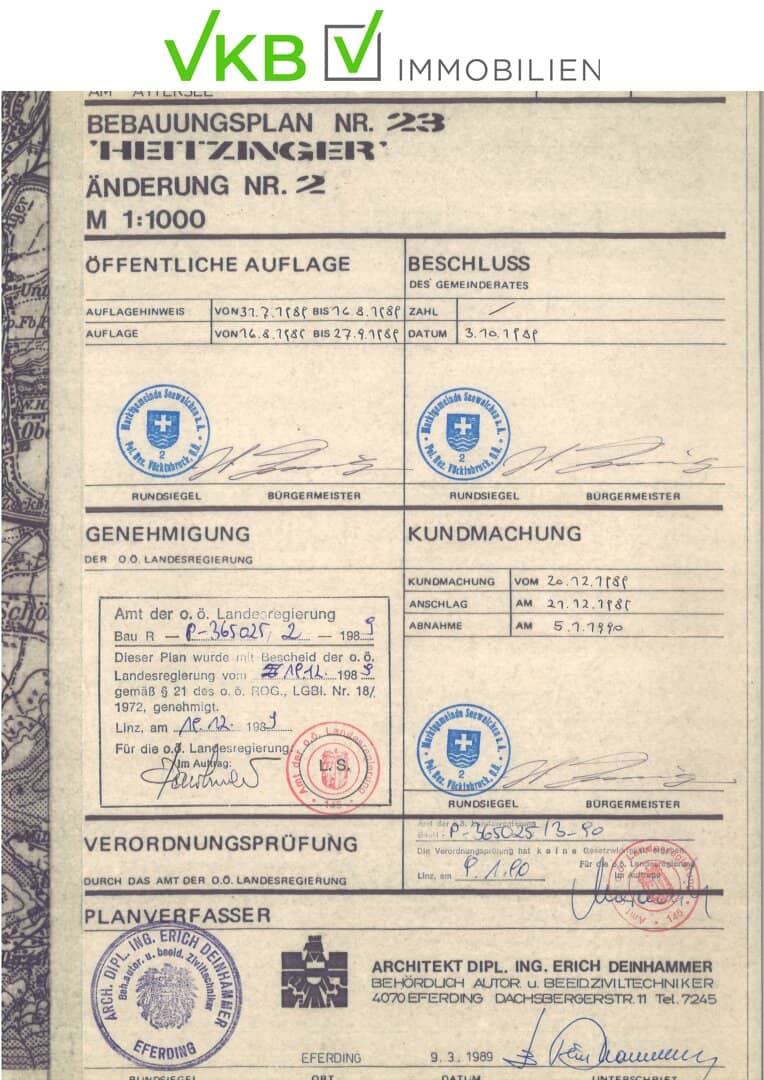 VKB IMMOBILIEN
AM ATTERSEE
BEBAUUNGSPLAN NR. 23
'HEITZINGER'
ÄNDERUNG NR. 2
M 1:1000
ÖFFENTLICHE AUFLAGE
AUFLAGEHINWEIS VON 31.7.1989 BIS 16.8.1989
AUFLAGE VON 16.8.1989 BIS 27.9.1989
BESCHLUSS
DES GEMEINDERATES
ZAHL /
DATUM 3.10.1989
Marktgemeinde Seewalchen a.A.
2
Pol. Bez. Vöcklabruck, O.Ö.
RUNDSIEGEL BÜRGERMEISTER
Marktgemeinde Seewalchen a.A.
2
Pol. Bez. Vöcklabruck, O.Ö.
RUNDSIEGEL BÜRGERMEISTER
GENEHMIGUNG
DER O.Ö. LANDESREGIERUNG
Amt der o. ö. Landesregierung
Bau R — P-365025/2 — 1989
Dieser Plan wurde mit Bescheid der o. ö.
Landesregierung vom 19.12. 1989
gemäß § 21 des o. ö. ROG., LGBl. Nr. 18/
1972, genehmigt.
Linz, am 19.12. 1989
Für die o.ö. Landesregierung
Im Auftrag:
Amt der o.ö. Landesregierung
L. S.
145
KUNDMACHUNG
KUNDMACHUNG VOM 20.12.1989
ANSCHLAG AM 21.12.1989
ABNAHME AM 5.1.1990
Marktgemeinde Seewalchen a.A.
2
Pol. Bez. Vöcklabruck, O.Ö.
RUNDSIEGEL BÜRGERMEISTER
VERORDNUNGSPRÜFUNG
DURCH DAS AMT DER O.Ö. LANDESREGIERUNG
Amt der o.ö. Landesregierung
BauR - P-365025/3-90
Die Verordnungsprüfung hat keine Gesetzwidrigkeit ergeben.
Linz, am 9.1.90
Für die o.ö. Landesregierung
Im Auftrage
145
PLANVERFASSER
ARCH. DIPL. ING. ERICH DEINHAMMER
Beh. autor. u. beeid. Ziviltechniker
EFERDING
ARCHITEKT DIPL. ING. ERICH DEINHAMMER
BEHÖRDLICH AUTOR. u. BEEID. ZIVILTECHNIKER
4070 EFERDING DACHSBERGERSTR. 11 Tel. 7245
EFERDING 9. 3. 1989
RUNDSIEGEL ORT DATUM UNTERSCHRIFT